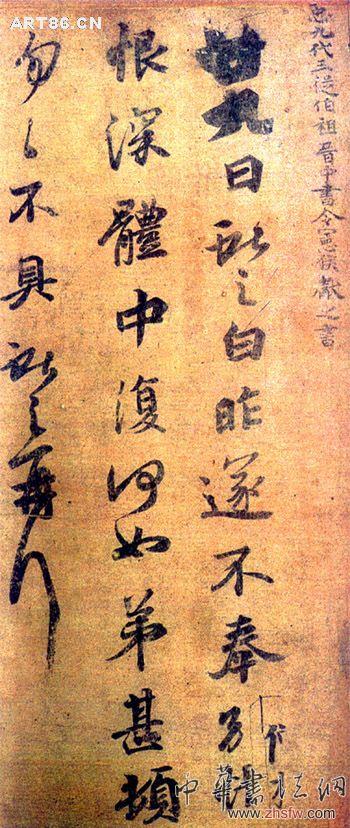 ART86.CN
臣九代三從伯祖晉中書令憲侯獻之書
廿九日獻之白昨遂不奉別悵
恨深體中復何如弟甚頓
匆匆不具獻之再拜
中華書法網
www.zhsfw.com